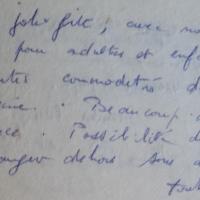 joli gîte, avec
pour adultes et enf
commodité d
. Beaucoup
. Possibilité d
anger dehors sous
tout